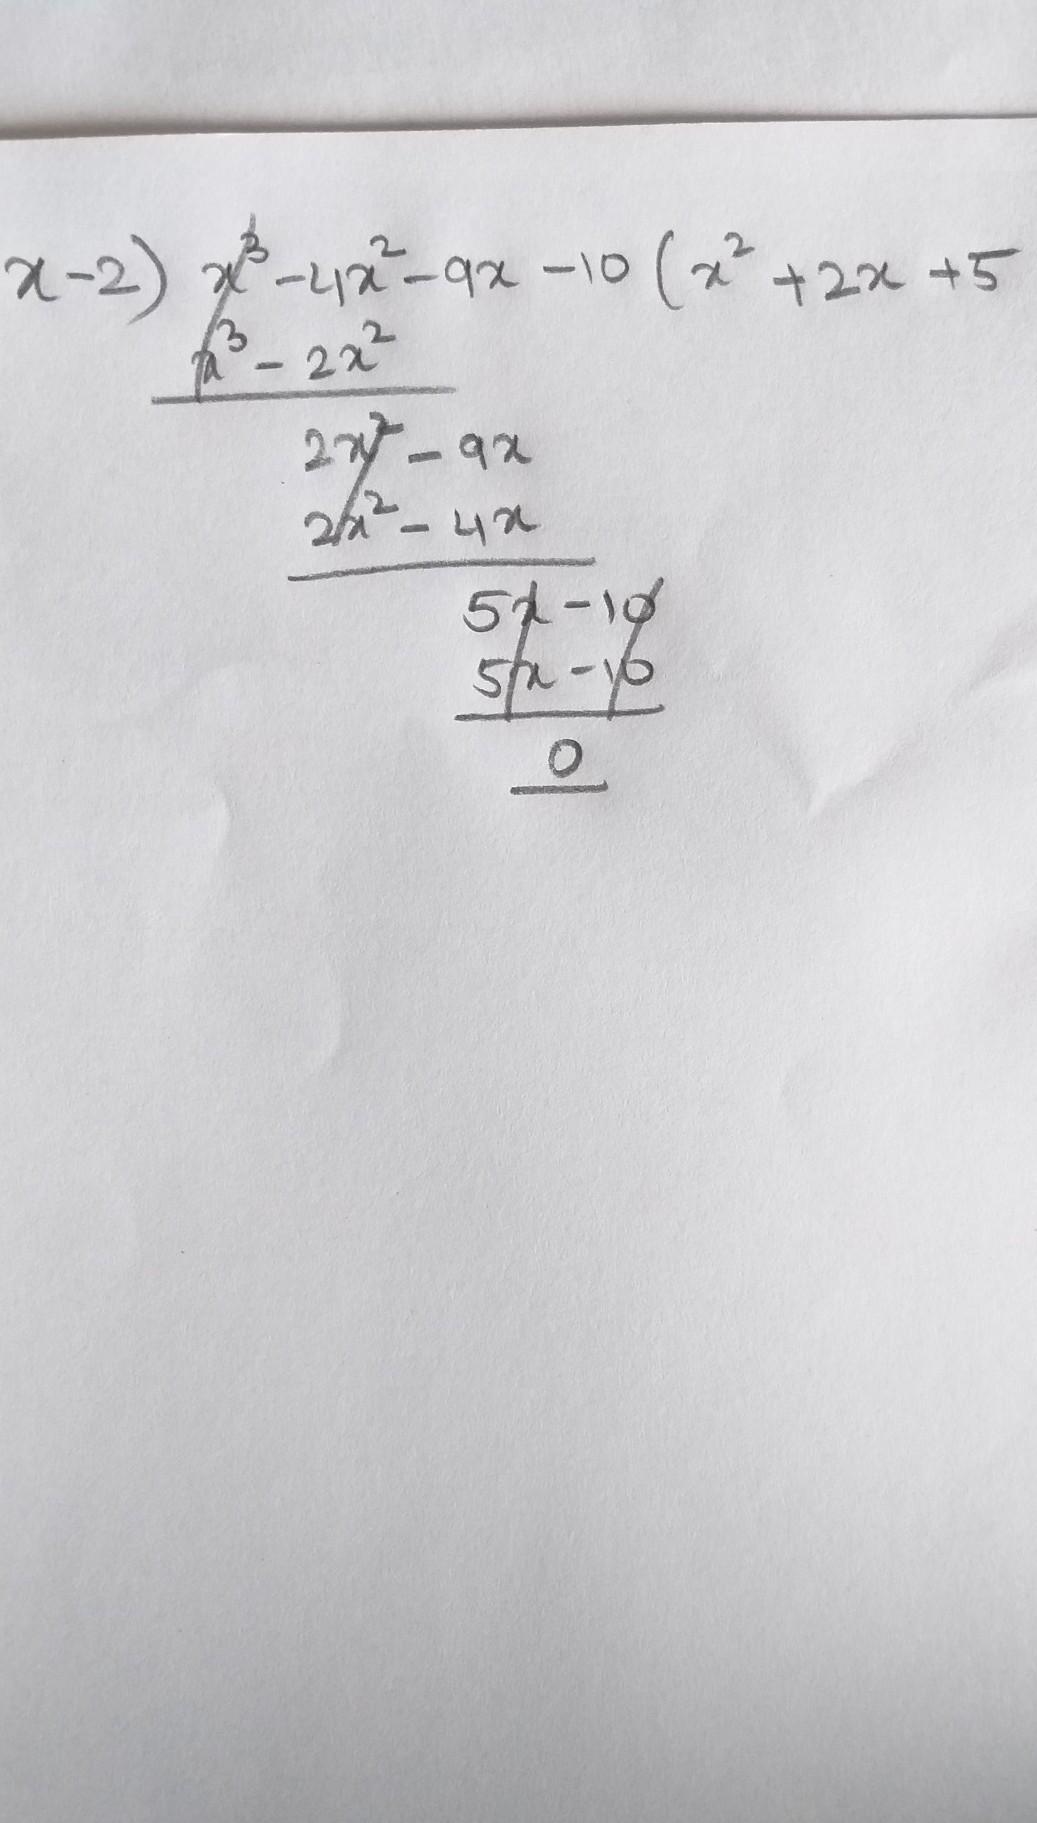 x-2) x³ -4x² -9x -10 (x² +2x +5
x³ - 2x²
2x² - 9x
2x² - 4x
5x - 10
5x - 10
0